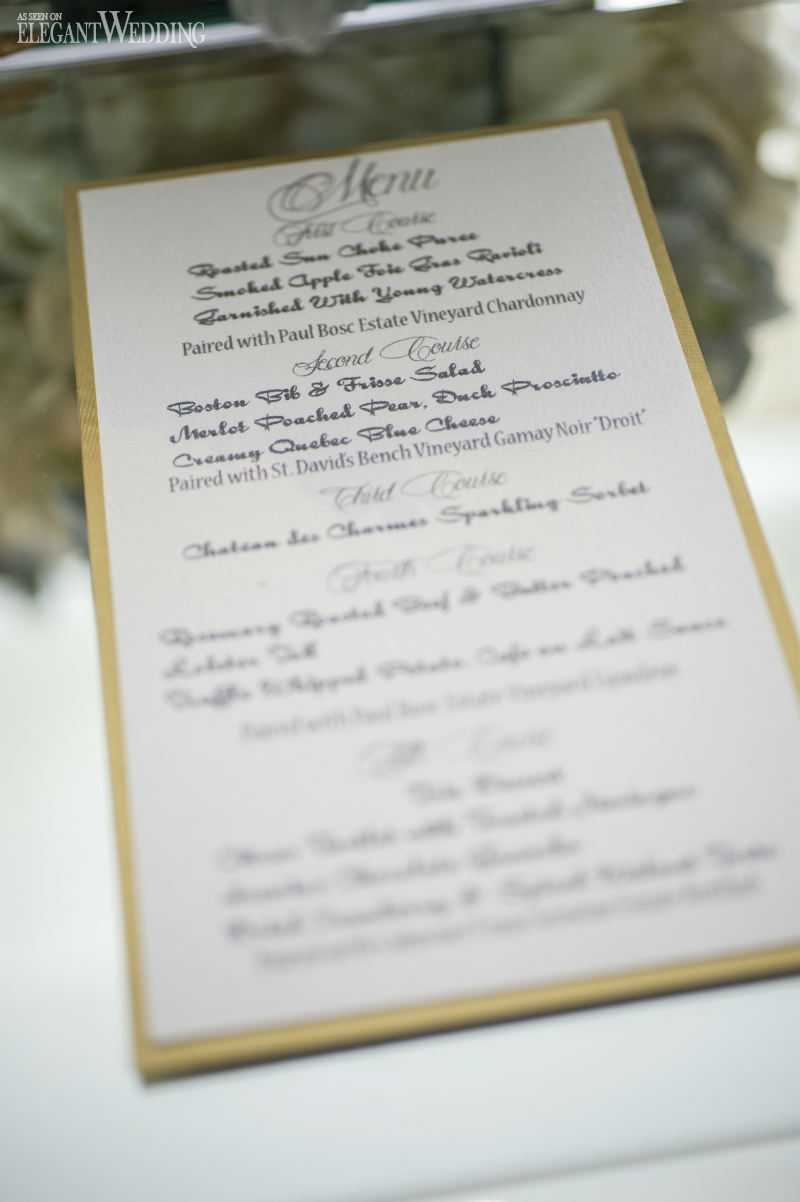 AS SEEN ON
ELEGANTWEDDING
Menu
First Course
Roasted Sun Choke Puree
Smoked Apple Foie Gras Ravioli
Garnished With Young Watercress
Paired with Paul Bosc Estate Vineyard Chardonnay
Second Course
Boston Bib & Frisse Salad
Merlot Poached Pear, Duck Prosciutto
Creamy Quebec Blue Cheese
Paired with St. David's Bench Vineyard Gamay Noir "Droit"
Third Course
Chateau des Charmes Sparkling Sorbet
Fourth Course
Rosemary Roasted Beef & Butter Poached
Lobster Tail
Truffle Whipped Potato, Cafe au Lait Sauce
Paired with Paul Bosc Estate Vineyard Equuleus
Course
Trio Dessert
with Toasted Meringue
Chocolate
Cranberry & Walnut